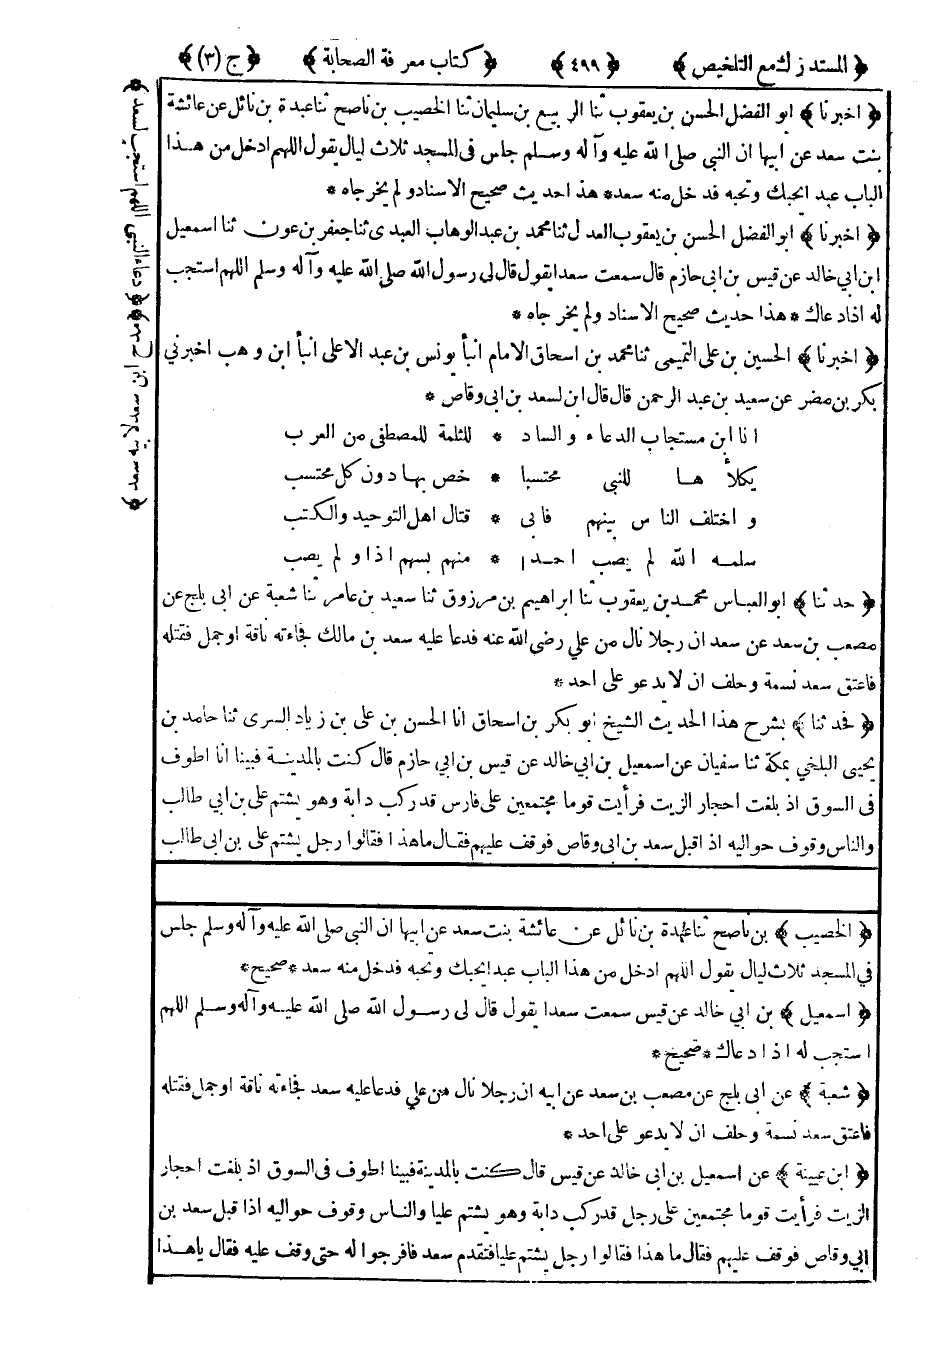 ﴿ المستدرك مع التلخيص ﴾ ﴿ ٤٩٩ ﴾ ﴿ كتاب معرفة الصحابة ﴾ ﴿ ج (٣) ﴾
﴿ اخبرنا ﴾ ابو الفضل الحسن بن يعقوب ثنا الربيع بن سليمان ثنا الخصيب بن ناصح ثنا عبدة بن نائل عن عائشة
بنت سعد عن ابيها ان النبي صلى الله عليه وآله وسلم جلس فى المسجد ثلاث ليال يقول اللهم ادخل من هذا
الباب عبد ايحبك وتحبه فدخل منه سعد * هذ احديث صحيح الاسناد ولم يخرجاه *
﴿ اخبرنا ﴾ ابو الفضل الحسن بن يعقوب العدل ثنا محمد بن عبد الوهاب العبدى ثنا جعفر بن عون ثنا اسمعيل
ابن ابي خالد عن قيس بن ابى حازم قال سمعت سعدا يقول قال لى رسول الله صلى الله عليه وآله وسلم اللهم استجب
له اذا دعاك * هذا حديث صحيح الاسناد ولم يخرجاه *
﴿ اخبرنا ﴾ الحسين بن على التميمى ثنا محمد بن اسحاق الامام انبأ يونس بن عبد الاعلى انبأ ابن وهب اخبرني
بكر بن مضر عن سعيد بن عبد الرحمن قال قال ابن لسعد بن ابى وقاص *
انا ابن مستجاب الدعاء والساد * للثلمة للمصطفى من العرب
يكلأ ها للنبي محتسبا * خص بها دون كل محتسب
واختلف الناس بينهم فابى * قتال اهل التوحيد والكتب
سلمه الله لم يصب احدا * منهم بسهم اذا ولم يصب
﴿ حدثنا ﴾ ابو العباس محمد بن يعقوب ثنا ابراهيم بن مرزوق ثنا سعيد بن عامر ثنا شعبة عن ابى بلج عن
مصعب بن سعد عن سعد ان رجلا نال من علي رضى الله عنه فدعا عليه سعد بن مالك فجاءته ناقة او جمل فقتله
فاعتق سعد نسمة وحلف ان لا يدعو على احد *
﴿ فحدثنا ﴾ بشرح هذا الحديث الشيخ ابو بكر بن اسحاق انا الحسن بن على بن زياد السرى ثنا حامد بن
يحيى البلخي بمكة ثنا سفيان عن اسمعيل بن ابى خالد عن قيس بن ابي حازم قال كنت بالمدينة فبينا انا اطوف
فى السوق اذ بلغت احجار الزيت فرأيت قوما مجتمعين على فارس قد ركب دابة وهو يشتم على بن ابي طالب
والناس وقوف حواليه اذ اقبل سعد بن ابى وقاص فوقف عليهم فقال ما هذا فقالوا رجل يشتم على بن ابى طالب
﴿ الخصيب ﴾ بن ناصح ثنا عبدة بن نائل عن عائشة بنت سعد عن ابيها ان النبي صلى الله عليه وآله وسلم جلس
في المسجد ثلاث ليال يقول اللهم ادخل من هذا الباب عبد ايحبك وتحبه فدخل منه سعد * صحيح *
﴿ اسمعيل ﴾ بن ابي خالد عن قيس سمعت سعدا يقول قال لى رسول الله صلى الله عليه وآله وسلم اللهم
استجب له اذا دعاك * صحيح *
﴿ شعبة ﴾ عن ابى بلج عن مصعب بن سعد عن ابيه ان رجلا نال من علي فدعا عليه سعد فجاءته ناقة او جمل فقتله
فاعتق سعد نسمة وحلف ان لا يدعو على احد *
﴿ ابن عيينة ﴾ عن اسمعيل بن ابى خالد عن قيس قال كنت بالمدينة فبينا اطوف فى السوق اذ بلغت احجار
الزيت فرأيت قوما مجتمعين على رجل قد ركب دابة وهو يشتم عليا والناس وقوف حواليه اذا قبل سعد بن
ابي وقاص فوقف عليهم فقال ما هذا فقالوا رجل يشتم عليا فتقدم سعد فافرجوا له حتى وقف عليه فقال يا هذا
﴿ دعاء النبي اللهم استجب لسعد ﴾
﴿ مدح ابن سعد لابيه سعد ﴾